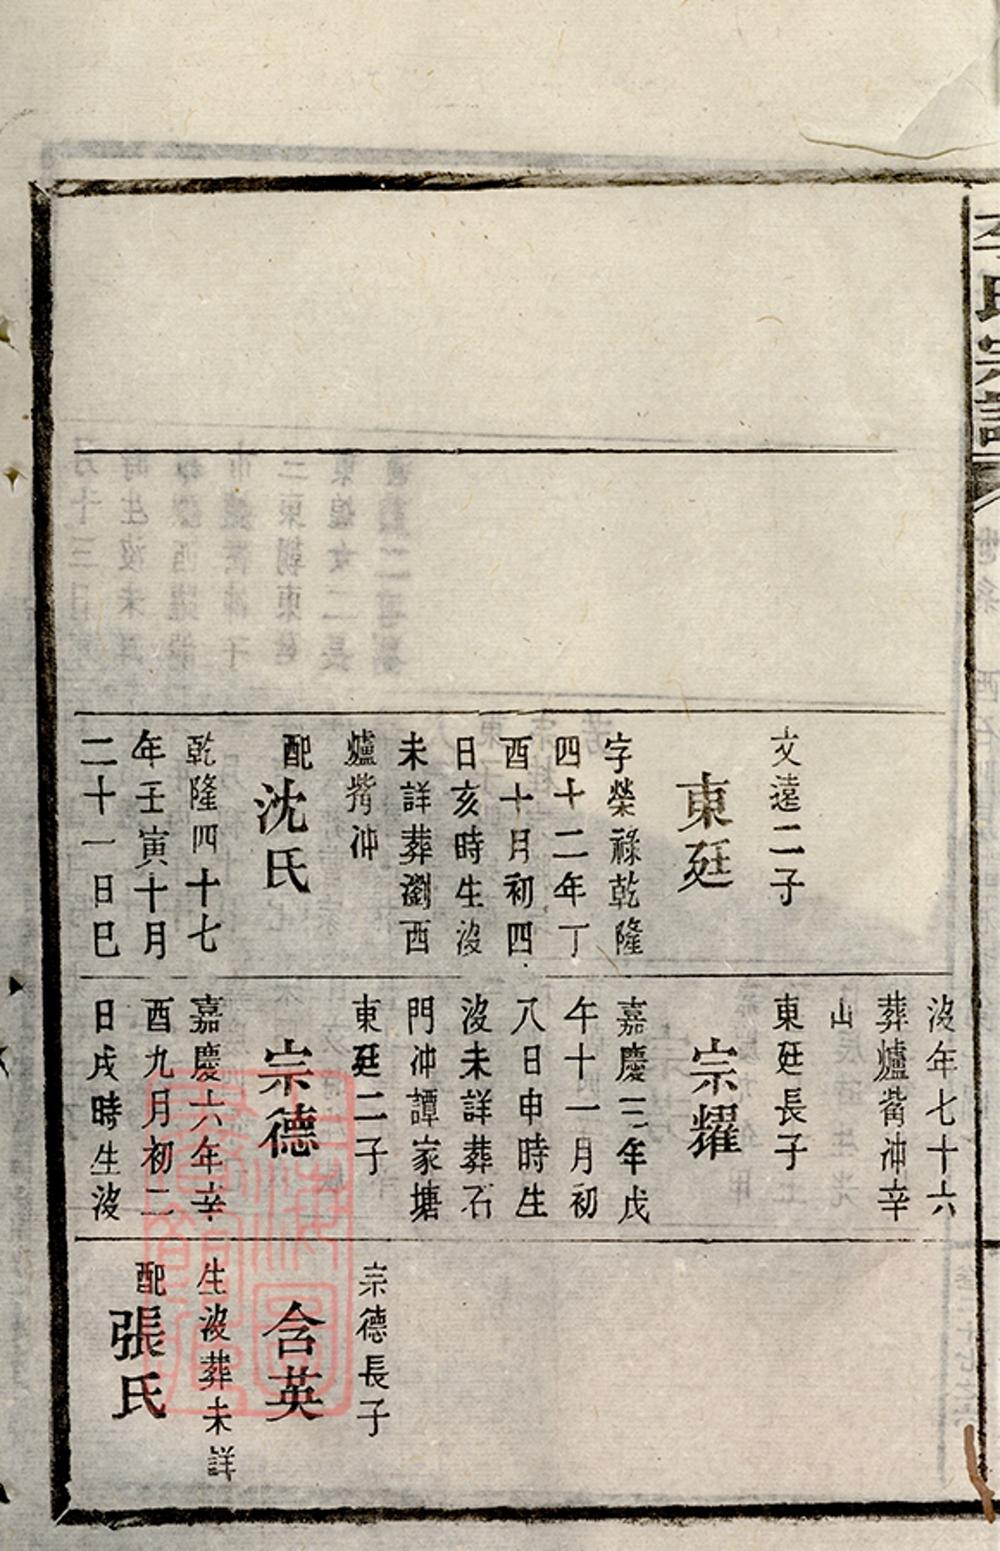 李氏宗譜
文遠二子
東廷
字榮祿乾隆
四十二年丁
酉十月初四
日亥時生沒
未詳葬瀏西
爐觜冲
配沈氏
乾隆四十七
年壬寅十月
二十一日巳
沒年七十六
葬爐觜冲辛
山
東廷長子
宗耀
嘉慶三年戊
午十一月初
八日申時生
沒未詳葬石
門冲譚家塘
東廷二子
宗德
嘉慶六年辛
酉九月初二
日戌時生沒
宗德長子
含英
生沒葬未詳
配張氏